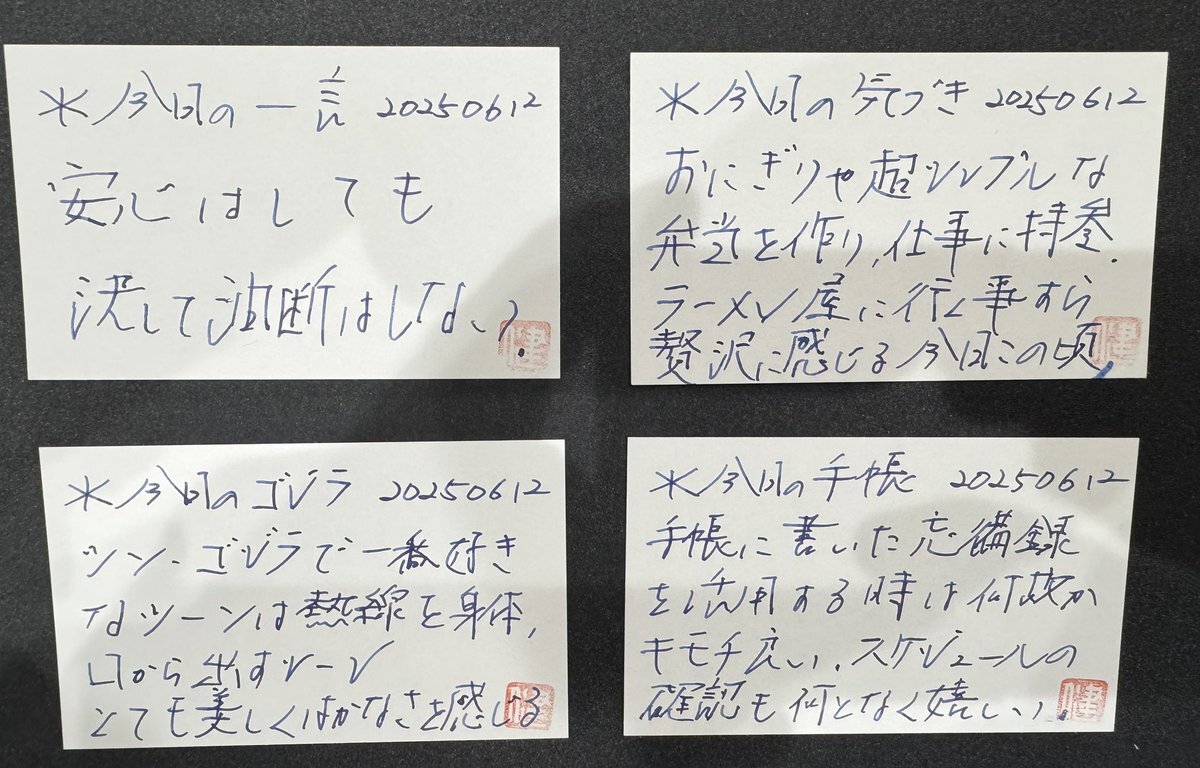 *今日の一言 20250612
安心はしても
決して油断はしない.
*今日の気づき 20250612
おにぎりや超シンプルな
弁当を作り,仕事に持参.
ラーメン屋に行く事すら
贅沢に感じる今日この頃.
*今日のゴジラ 20250612
シン・ゴジラで一番好き
なシーンは熱線を身体,
口から出すシーン
とても美しくはかなさを感じる
*今日の手帳 20250612
手帳に書いた忘備録
を活用する時は何故か
キモチ広い.スケジュールの
確認も何となく嬉しい.